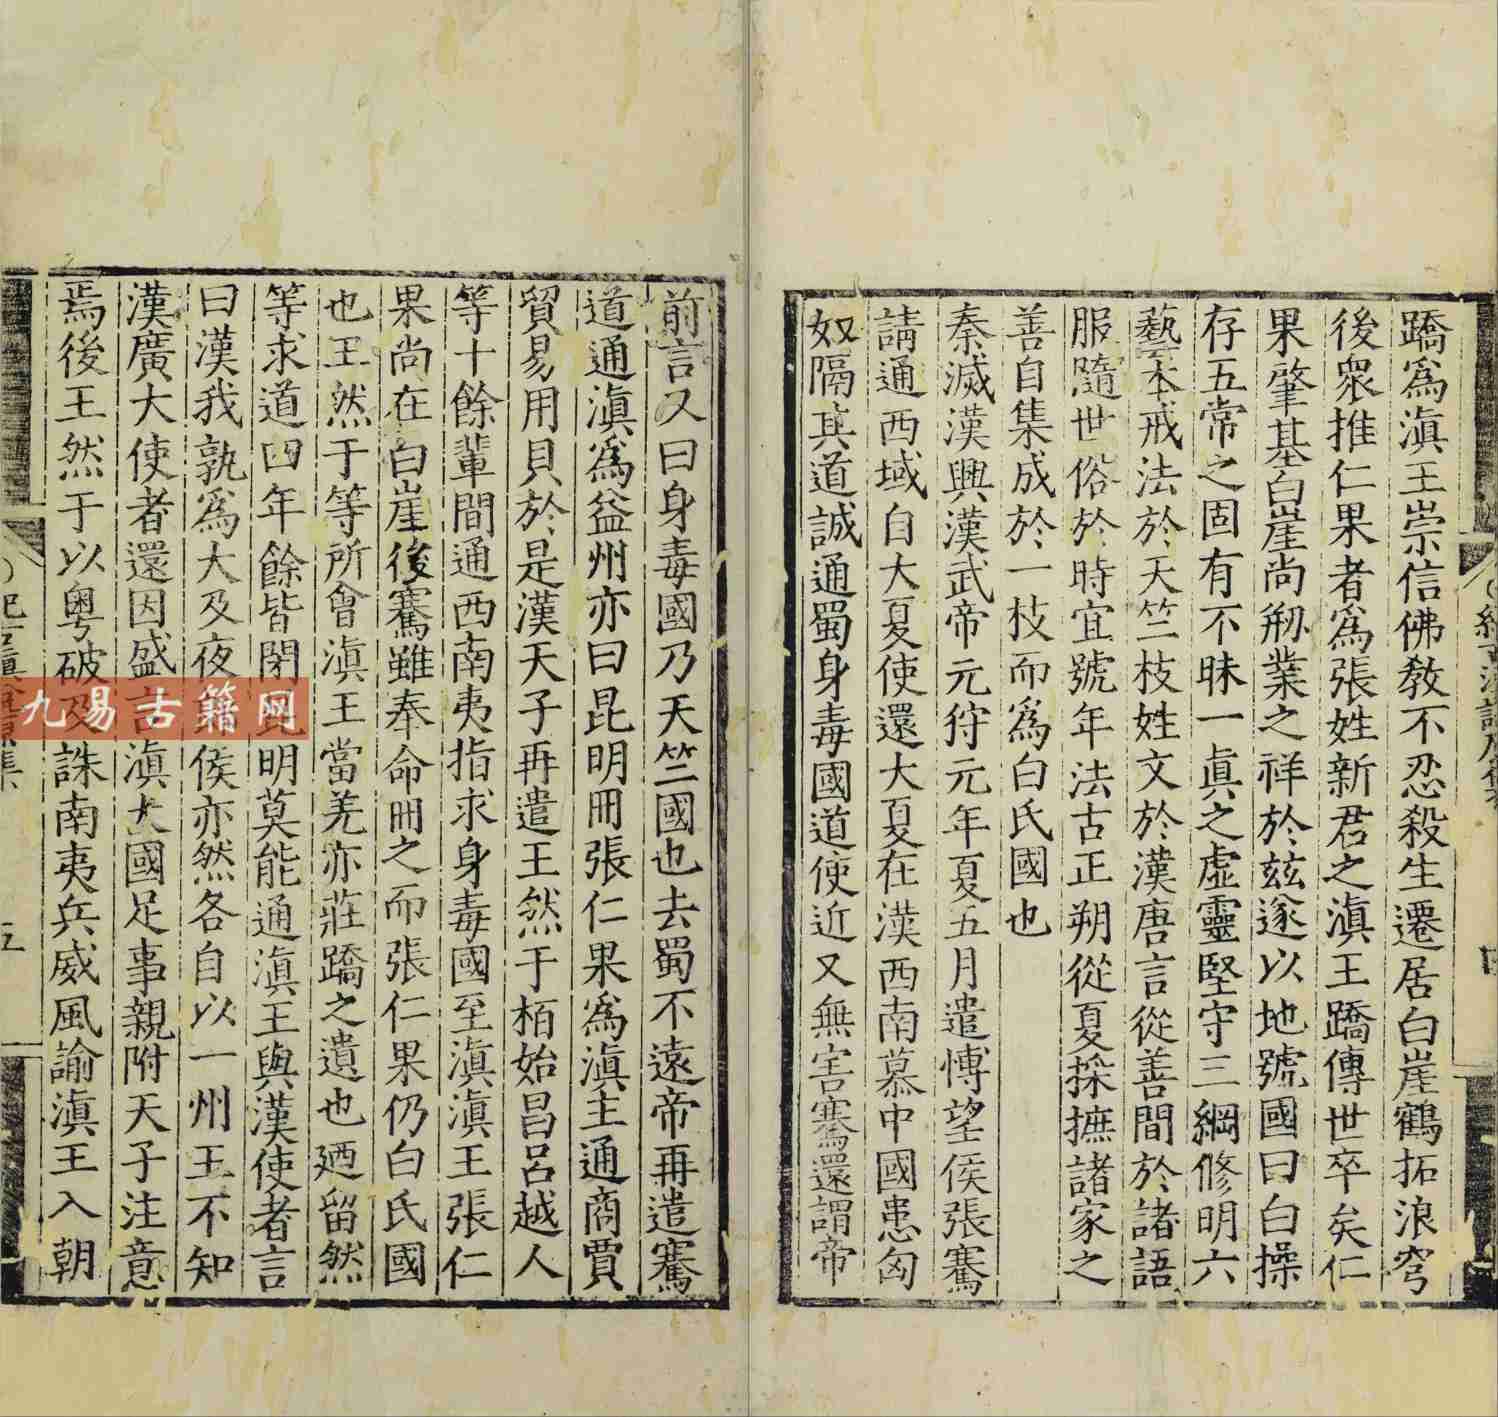 蹻為滇王崇信佛教不忍殺生遷居白崖鶴拓浪穹
後衆推仁果者為張姓新君之滇王蹻傳世卒矣仁
果肇基白崖尚剏業之祥於兹遂以地號國曰白操
存五常之固有不昧一眞之虛靈堅守三綱修明六
藝本戒法於天竺枝姓文於漢唐言從善間於諸語
服隨世俗於時宜號年法古正朔從夏採摭諸家之
善自集成於一枝而為白氏國也
秦滅漢興漢武帝元狩元年夏五月遣愽望侯張騫
請通西域自大夏使還大夏在漢西南慕中國患匈
奴隔其道誠通蜀身毒國道便近又無害騫還謂帝
前言又曰身毒國乃天竺國也去蜀不遠帝再遣騫
道通滇為益州亦曰昆明冊張仁果為滇主通商賈
貿易用貝於是漢天子再遣王然于栢始昌呂越人
等十餘輩間通西南夷指求身毒國至滇滇王張仁
果尚在白崖後騫雖奉命冊之而張仁果仍白氏國
也王然于等所會滇王當羌亦莊蹻之遺也廼留然
等求道四年餘皆閉昆明莫能通滇王與漢使者言
曰漢我孰為大及夜侯亦然各自以一州王不知
漢廣大使者還因盛言滇大國足事親附天子注意
焉後王然于以粤破及誅南夷兵威風諭滇王入朝
五
九易古籍网